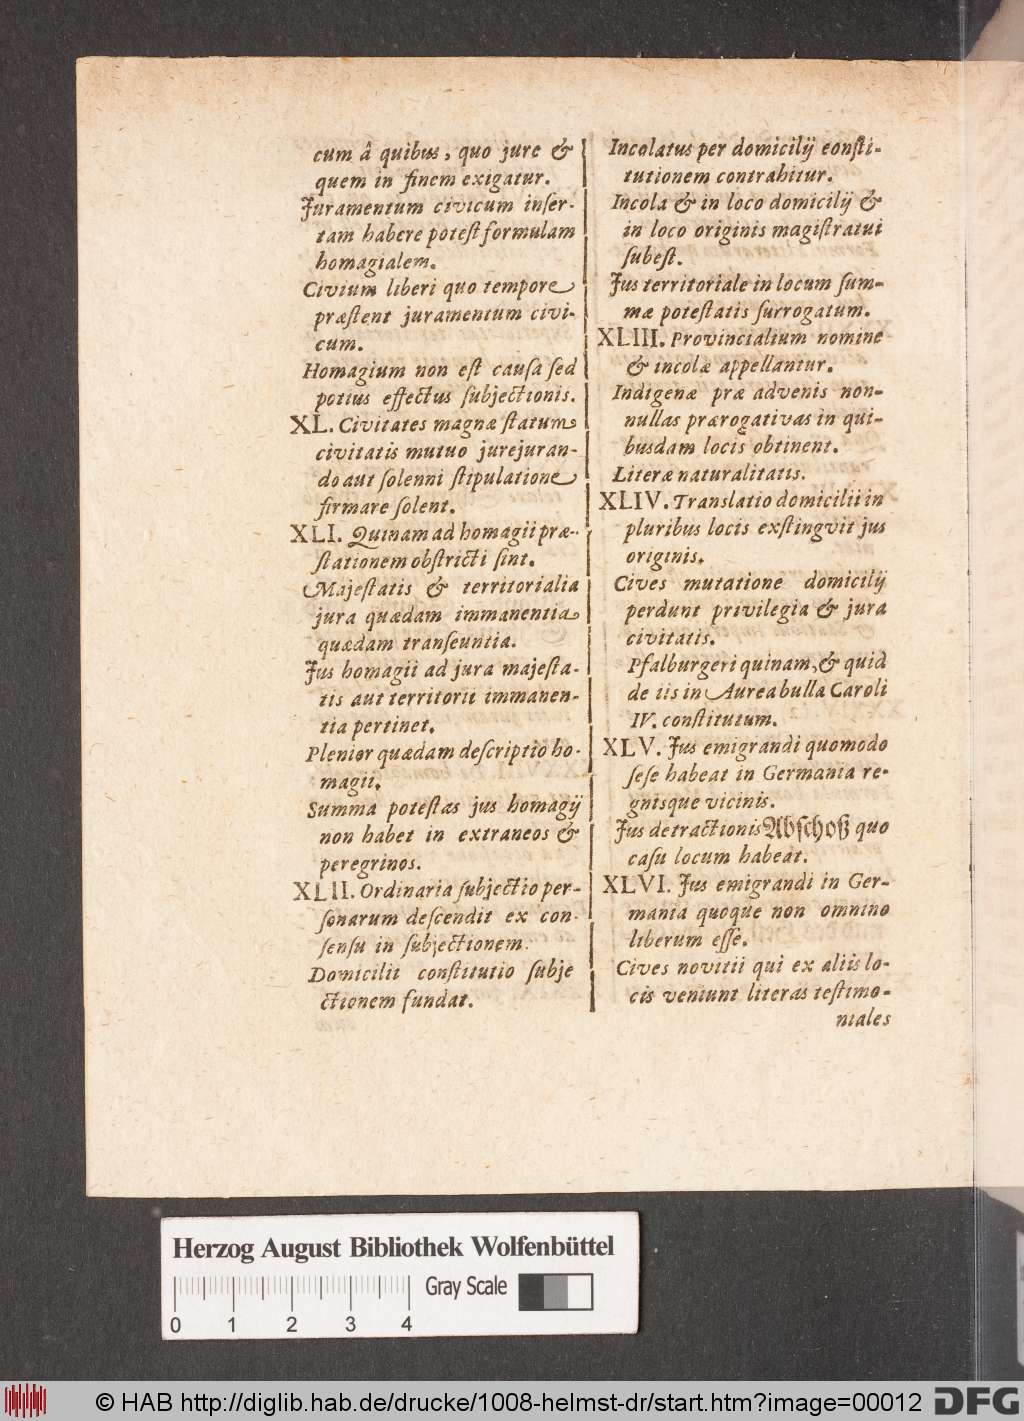 cum â quibus, quo jure &
quem in finem exigatur.
Juramentum civicum inser-
tam habere potest formulam
homagialem.
Civium liberi quo tempore
præstent juramentum civi-
cum.
Homagium non est causa sed
potius effectus subjectionis.
XL. Civitates magnæ statum
civitatis mutuo jurejuran-
do aut solenni stipulatione
firmare solent.
XLI. Quinam ad homagii præ-
stationem obstricti sint.
Majestatis & territorialia
jura quædam immanentia
quædam transeuntia.
Jus homagii ad jura majesta-
tis aut territorii immanen-
tia pertinet.
Plenior quædam descriptio ho-
magii.
Summa potestas jus homagij
non habet in extraneos &
peregrinos.
XLII. Ordinaria subjectio per-
sonarum descendit ex con-
sensu in subjectionem.
Domicilii constitutio subje
ctionem fundat.
Incolatus per domicilij consti-
tutionem contrahitur.
Incola & in loco domicilij &
in loco originis magistratui
subest.
Jus territoriale in locum sum-
mæ potestatis surrogatum.
XLIII. Provincialium nomine
& incolæ appellantur.
Indigenæ præ advenis non-
nullas prærogativas in qui-
busdam locis obtinent.
Literæ naturalitatis.
XLIV. Translatio domicilii in
pluribus locis exstingvit jus
originis.
Cives mutatione domicilij
perdunt privilegia & jura
civitatis.
Pfalburgeri quinam, & quid
de iis in Aurea bulla Caroli
IV. constitutum.
XLV. Jus emigrandi quomodo
sese habeat in Germania re-
gnisque vicinis.
Jus detractionis Abschoß quo
casu locum habeat.
XLVI. Jus emigrandi in Ger-
mania quoque non omnino
liberum esse.
Cives novitii qui ex aliis lo-
cis veniunt literas testimo-
niales
Herzog August Bibliothek Wolfenbüttel
Gray Scale
0 1 2 3 4
© HAB http://diglib.hab.de/drucke/1008-helmst-dr/start.htm?image=00012
DFG